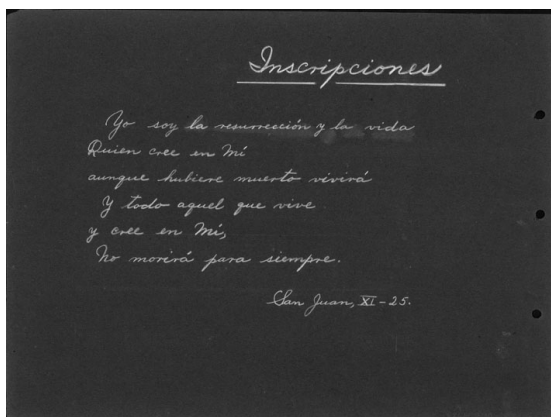 Inscripciones
Yo soy la resurrección y la vida
Quien cree en Mí
aunque hubiere muerto vivirá
Y todo aquel que vive
y cree en Mí,
No morirá para siempre.
San Juan, XI-25.